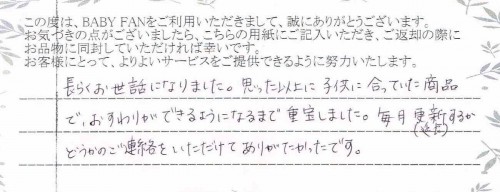 この度は、BABY FANをご利用いただきまして、誠にありがとうございます。
お気づきの点がございましたら、こちらの用紙にご記入いただき、ご返却の際に
お品物に同封していただければ幸いです。
お客様にとって、よりよいサービスをご提供できるように努力いたします。
長らくお世話になりました。思った以上に子供に合っていた商品
で、おすわりができるようになるまで重宝しました。毎月更新するか
どうかのご連絡をいただけてありがたかったです。